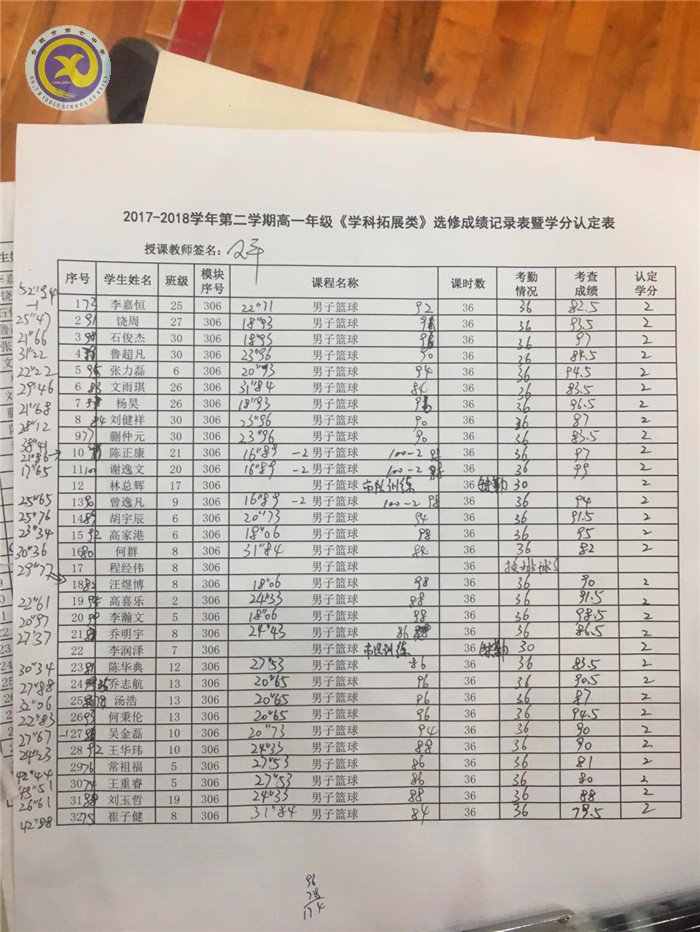 合肥市第七中学
NO.7 MIDDLE SCHOOL OF HEFEI
2017-2018学年第二学期高一年级《学科拓展类》选修成绩记录表暨学分认定表
授课教师签名：
序号 学生姓名 班级 模块序号 课程名称 课时数 考勤情况 考查成绩 认定学分
52"94 1 73 李嘉恒 25 306 22"71 男子篮球 92 36 36 82.5 2
25"47 2 91 饶周 27 306 18"93 男子篮球 36 36 93.5 2
21"66 3 石俊杰 30 306 18"93 男子篮球 36 36 97 2
31"22 4 鲁超凡 30 306 23"96 男子篮球 90 36 36 84.5 2
22"22 5 95 张力磊 6 306 20"93 男子篮球 94 36 36 94.5 2
29"46 6 83 文雨琪 26 306 31"84 男子篮球 84 36 36 83.5 2
21"68 7 杨昊 26 306 18"93 男子篮球 36 36 96.5 2
28"12 8 84 刘健祥 30 306 23"96 男子篮球 90 36 36 87 2
38"41 9 77 蒯仲元 30 306 23"96 男子篮球 90 36 36 83.5 2
21"86 10 陈正康 21 306 16"89 -2 男子篮球 100-2 98 36 36 97 2
17"65 11 谢逸文 20 306 16"89 -2 男子篮球 100-2 98 36 36 99 2
12 林总辉 17 306 市队训练 36 缺勤 30 2
25"65 13 90 曾逸凡 9 306 16"89 -2 男子篮球 100-2 98 36 36 94 2
25"76 14 89 胡宇辰 6 306 20"73 男子篮球 94 36 36 91.5 2
23"34 15 92 高家港 6 306 18"06 男子篮球 98 36 36 95 2
30"36 16 80 何群 8 306 31"84 男子篮球 84 36 36 82 2
17 程经伟 8 306 男子篮球 36
29"77 18 82 汪煜博 8 306 18"06 男子篮球 98 36 36 90 2
22"61 19 高喜乐 2 306 24"33 男子篮球 88 36 36 91.5 2
20"97 20 李瀚文 5 306 18"06 男子篮球 98 36 36 98.5 2
27"37 21 乔明宇 8 306 24"43 男子篮球 86 36 36 86.5 2
22 李润泽 7 306 市队训练 36 缺勤 30 2
30"34 23 81 陈华典 12 306 27"53 男子篮球 86 36 36 83.5 2
27"88 24 乔志航 13 306 20"65 男子篮球 96 36 36 90.5 2
31"06 25 78 汤浩 13 306 20"65 男子篮球 96 36 36 87 2
22"83 26 93 何秉伦 13 306 20"65 男子篮球 96 36 36 94.5 2
27"67 27 吴金磊 10 306 20"73 男子篮球 94 36 36 90 2
24"23 28 92 王华玮 10 306 24"33 男子篮球 88 36 36 90 2
42"44 29 76 常祖福 5 306 27"53 男子篮球 86 36 36 81 2
43"51 30 74 王重睿 5 306 27"53 男子篮球 86 36 36 80 2
26"61 31 88 刘玉哲 19 306 24"33 男子篮球 88 36 36 88 2
42"88 32 75 崔子健 8 306 31"84 男子篮球 84 36 36 79.5 2
96
78
174